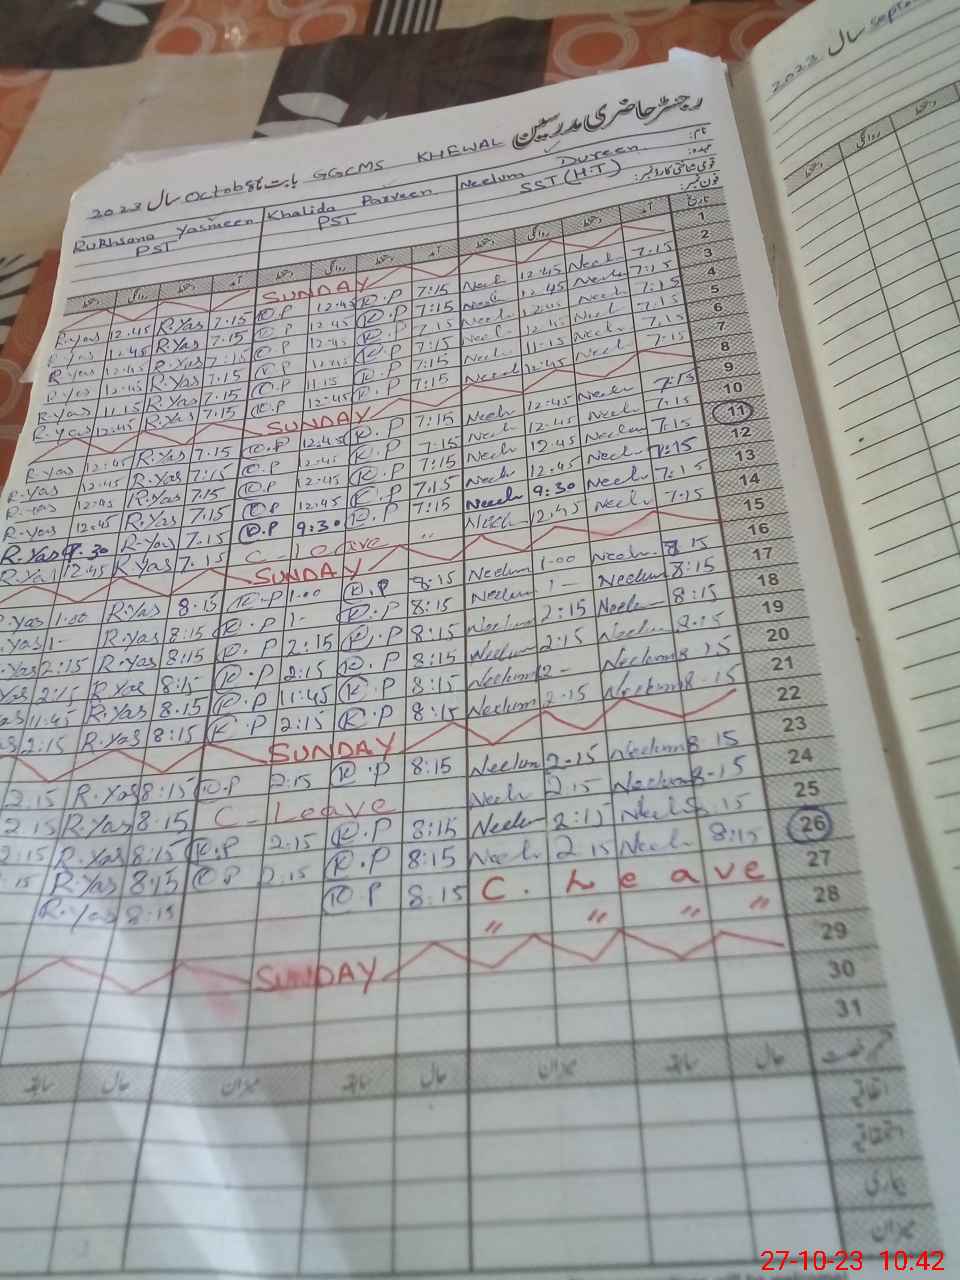 رجسٹر حاضری مدرسین
2023 سال October بابت GGCMS KHEWAL
Rukhsana Yasmeen Khalida Parveen Neelum Durreen
PST PST SST (H.T)
نام:
عہدہ:
قومی شناختی کارڈ نمبر:
فون نمبر:
دستخط روانگی دستخط آمد دستخط روانگی دستخط آمد دستخط روانگی دستخط آمد تاریخ
SUNDAY 1
R.yas 12.45 R.Yas 7.15 K.P 12.45 K.P 7:15 Neel 12.45 Neel 7.15 2
12.45 R.Yas 7.15 K.P 12.45 K.P 7:15 Neel 12.45 Neel 7:15 3
R.yas 12.45 R.Yas 7:15 K.P 12.45 K.P 7.15 Neel 12.45 Neel 7.15 4
R.yas 12.45 R.Yas 7.15 K.P 12.45 K.P 7:15 Neel 12.45 Neel 7.15 5
R.Yas 11.15 R.Yas 7.15 K.P 11.15 K.P 7:15 Neel 11.15 Neel 7.15 6
R.Yas 12.45 R.Yas 7.15 K.P K.P 7:15 Neel 12.45 Neel 7.15 7
SUNDAY 8
R.Yas 12.45 R.Yas 7.15 K.P 12.45 K.P 7:15 Neel 12.45 Neel 7:15 9
R.Yas 12.45 R.Yas 7:15 K.P 12.45 K.P 7.15 Neel 12.45 Neel 7.15 10
12.45 R.Yas 7.15 K.P 12.45 K.P 7:15 Neel 12.45 Neelum 7.15 11
R.Yas 12.45 R.Yas 7.15 K.P 12.45 K.P 7.15 Neel 12.45 Neel 7:15 12
R.Yas 9.30 R.Yas 7.15 K.P 9:30 K.P 7:15 Neel 9.30 Neel 7:15 13
R.Yas 12.45 R.Yas 7.15 C-Leave " Neel 12.45 Neel 7.15 14
SUNDAY 15
Yas 1.00 R.Yas 8:15 K.P 1.00 K.P 8:15 Neelum 1.00 Neel 8.15 16
Yas 1- R.Yas 8:15 K.P 1- K.P 8:15 Neelum 1- Neelum 8:15 17
Yas 2:15 R.Yas 8:15 K.P 2:15 K.P 8:15 Neelum 2:15 Neel 8:15 18
Yas 2:15 R.Yas 8:15 K.P 2:15 K.P 8:15 Neelum 2:15 Neel 8.15 19
as 11:45 R.Yas 8.15 K.P 11:45 K.P 8:15 Neelum 12- Neelum 8:15 20
2:15 R.Yas 8:15 K.P 2:15 K.P 8:15 Neelum 2.15 Neelum 8-15 21
SUNDAY 22
2.15 R.Yas 8:15 K.P 2:15 K.P 8:15 Neelum 2-15 Neelum 8:15 23
2.15 R.Yas 8.15 C-Leave Neel 2.15 Neelum 8-15 24
2:15 R.Yas 8:15 K.P 2:15 K.P 8:15 Neelum 2:15 Neel 8.15 25
15 R.Yas 8:15 K.P 2:15 K.P 8:15 Neel 2.15 Neel 8:15 26
R.Yas 8:15 K.P 8.15 C. Leave 27
" " " " 28
SUNDAY 29
30
31
سابقہ حال میزان سابقہ حال میزان سابقہ حال قسم رخصت
اتفاقیہ
استحقاقیہ
بیماری
میزان
2023 سال Septe
دستخط روانگی دستخط
27-10-23 10:42